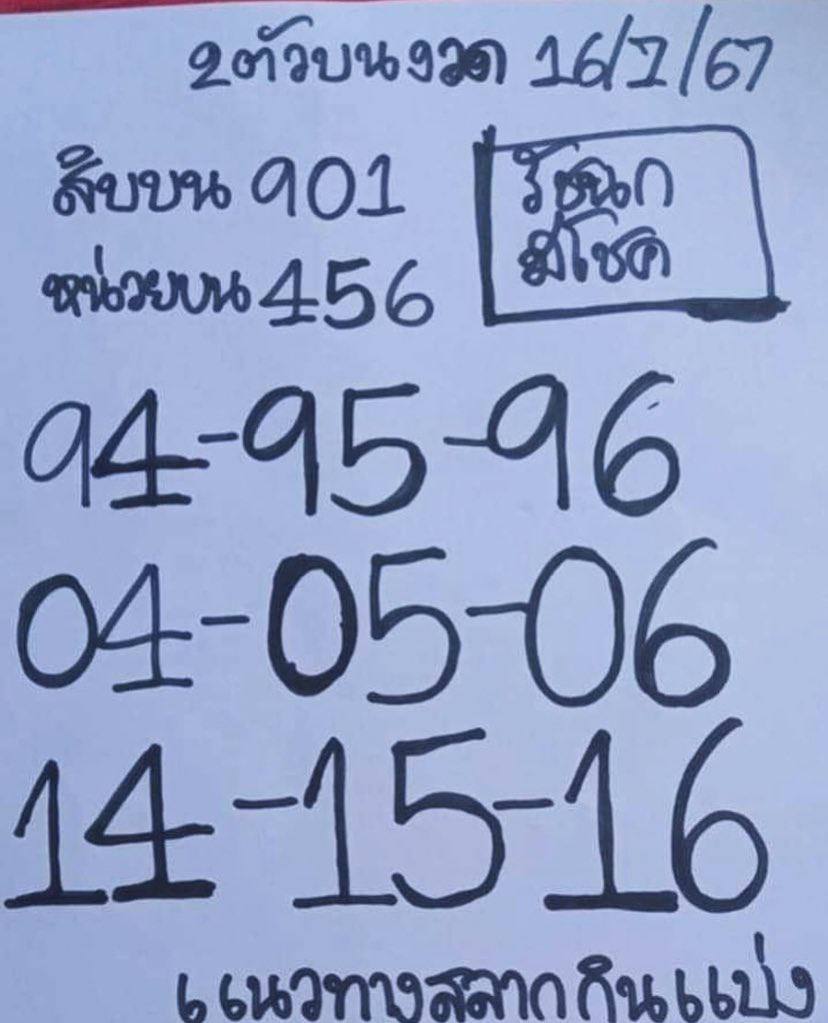 2ตัวบนงวด 16/7/67
สิบบน 901
หน่วยบน 456
รัชนก
มีโชค
94-95-96
04-05-06
14-15-16
แนวทางสลากกินแบ่ง